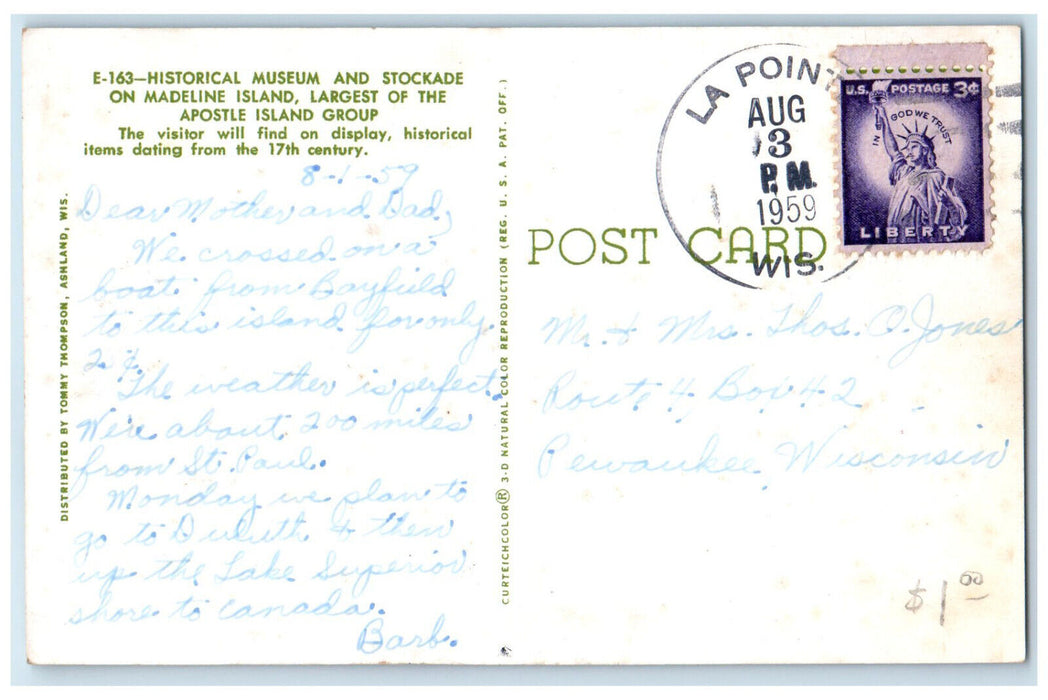 E-163—HISTORICAL MUSEUM AND STOCKADE
ON MADELINE ISLAND, LARGEST OF THE
APOSTLE ISLAND GROUP
The visitor will find on display, historical
items dating from the 17th century.
8-1-59
Dear Mother and Dad,
We crossed on a
boat from Bayfield
to this island for only
The weather is perfect.
We're about 200 miles
from St. Paul.
Monday we plan to
go to Duluth & then
up the Lake Superior
shore to Canada.
Barb.
DISTRIBUTED BY TOMMY THOMPSON, ASHLAND, WIS.
CURTEICHCOLOR® 3-D NATURAL COLOR REPRODUCTION (REG. U. S. A. PAT. OFF.)
POST CARD
LA POINT
AUG
3
P.M.
1959
WIS.
U.S. POSTAGE 3¢
IN GOD WE TRUST
LIBERTY
Mr. & Mrs. Thos. O. Jones
Route 4 Box 42
Pewaukee, Wisconsin
$1.00